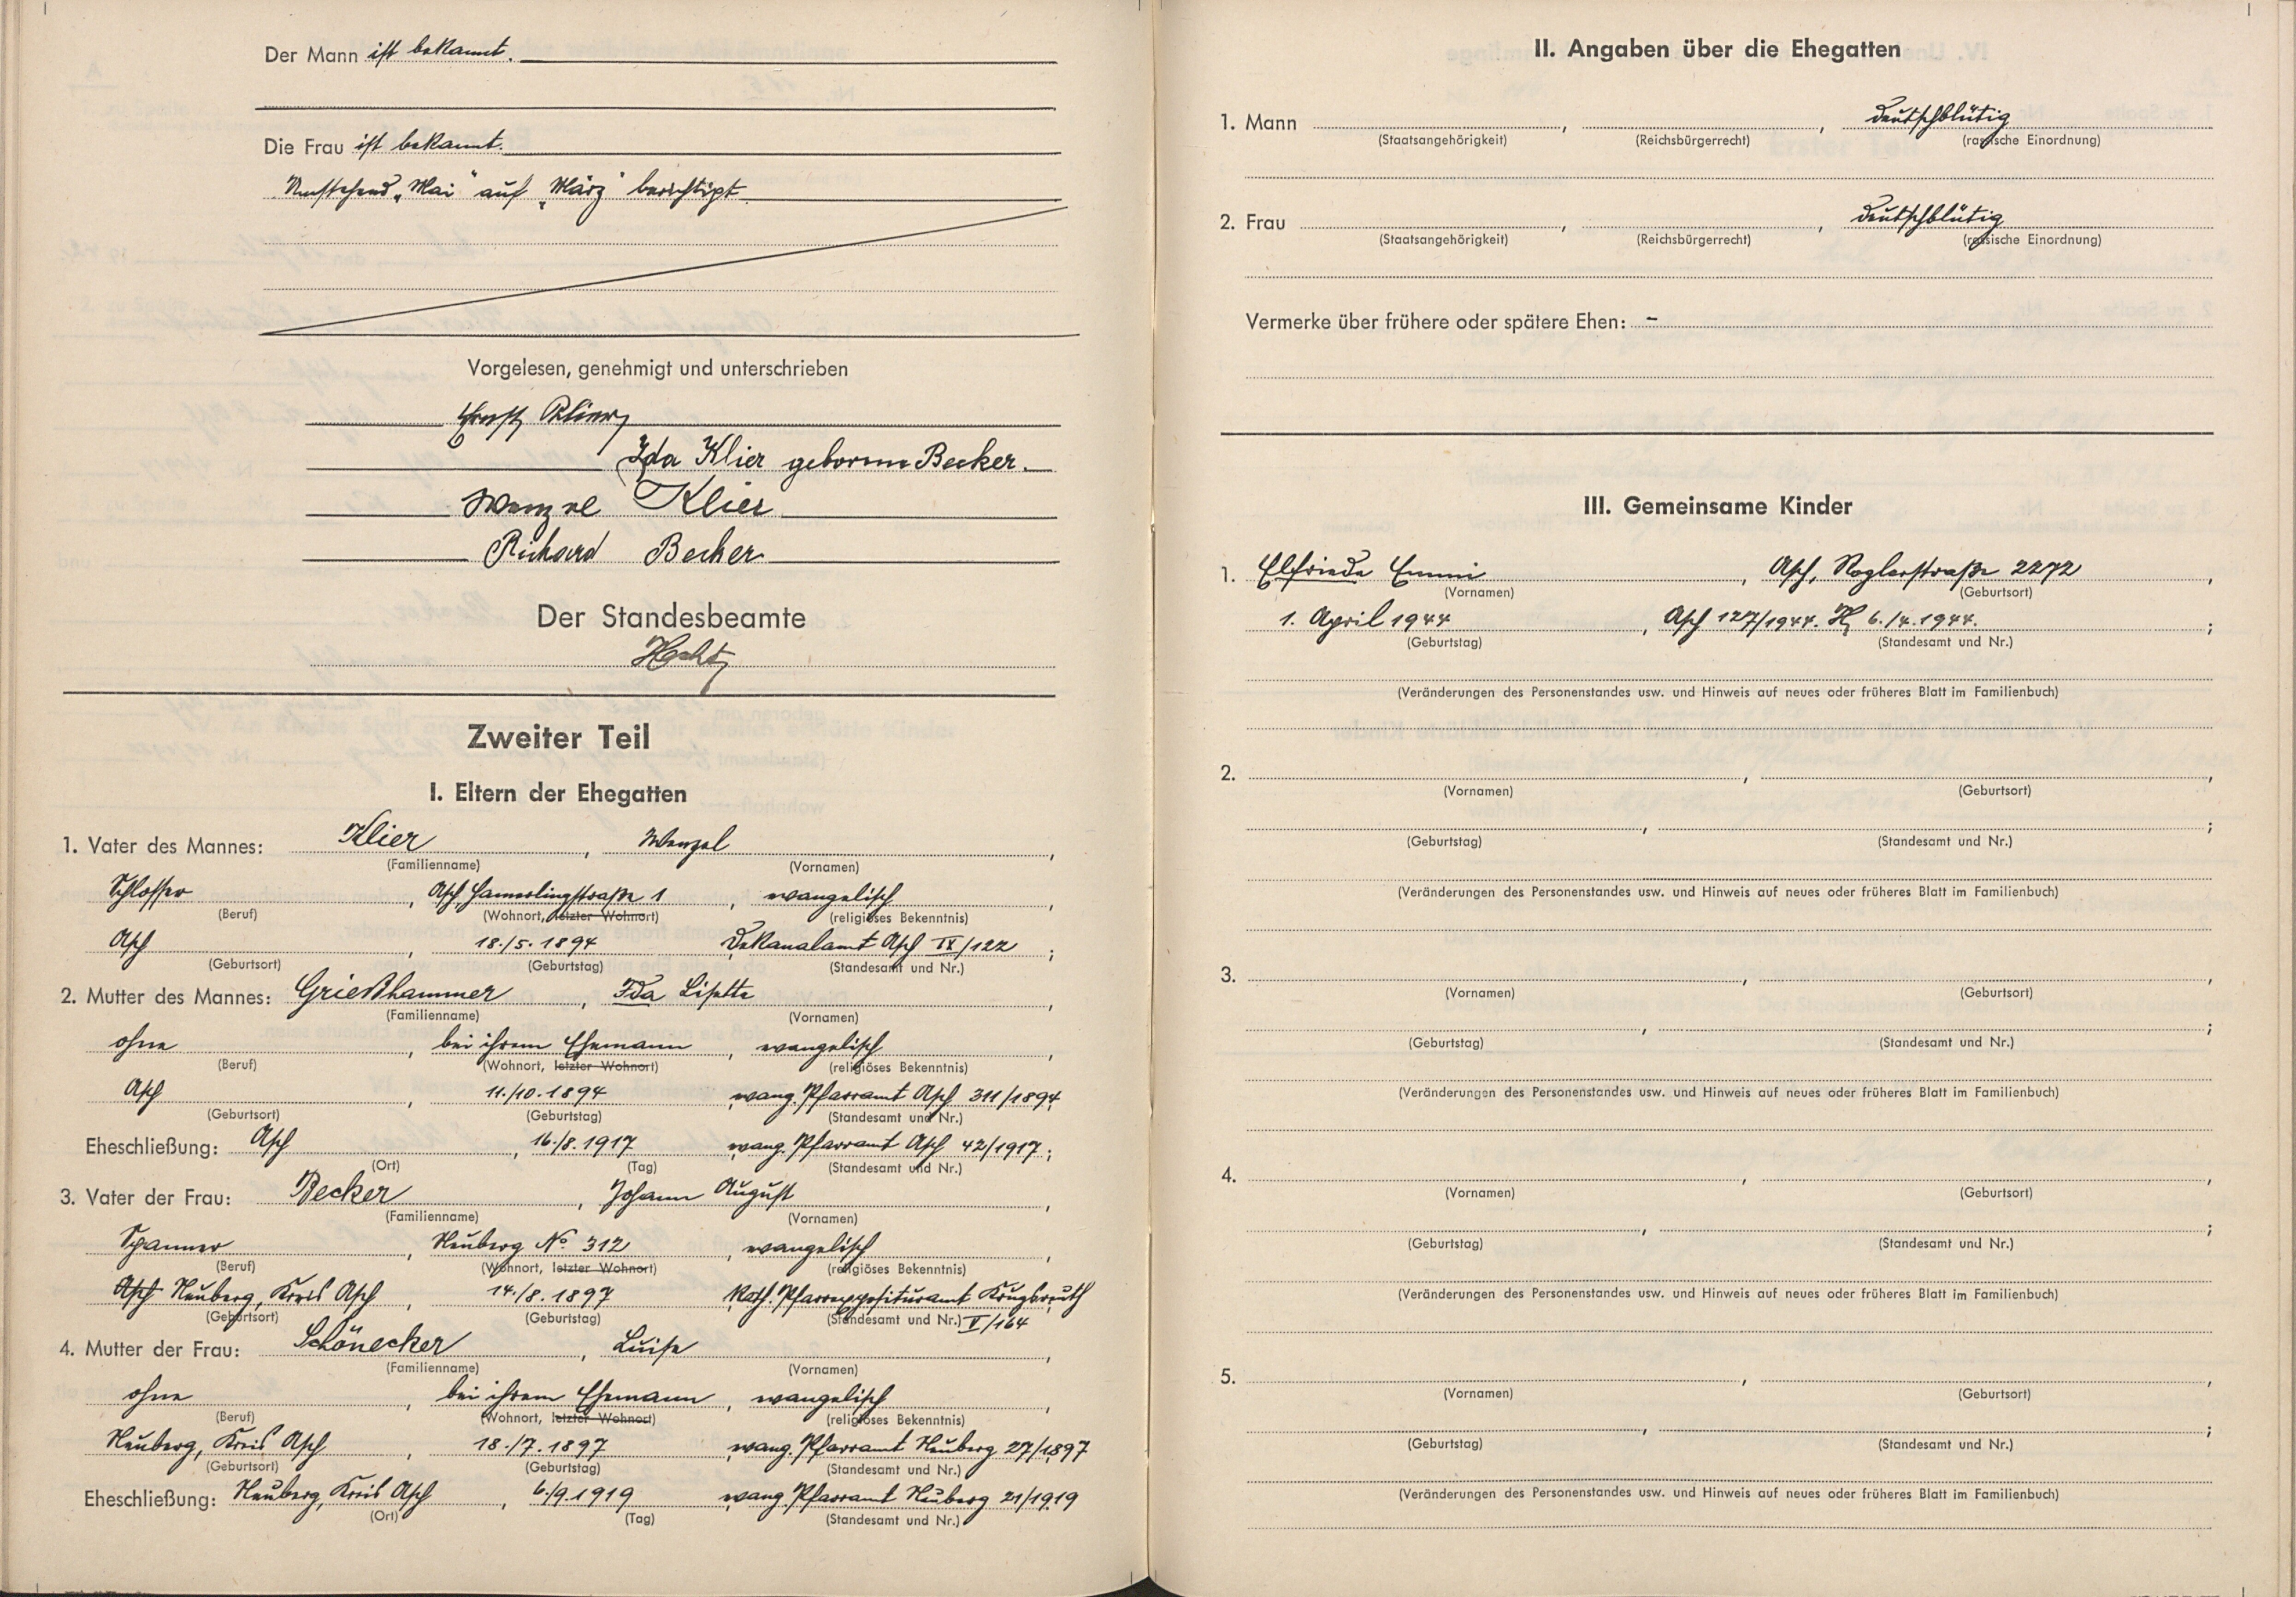 Der Mann ist bekannt.
Die Frau ist bekannt.
Umstehend „Mai“ auf „März“ berichtigt
Vorgelesen, genehmigt und unterschrieben
Ernst Klier
Ida Klier geborene Becker.
Wenzel Klier
Richard Becker
Der Standesbeamte
Zweiter Teil
I. Eltern der Ehegatten
1. Vater des Mannes: Klier, Wenzel,
(Familienname) (Vornamen)
Schlosser, Asch, Hamerlingstraße 1, evangelisch,
(Beruf) (Wohnort, letzter Wohnort) (religiöses Bekenntnis)
Asch, 18./5.1894, Dekanalamt Asch IX/122;
(Geburtsort) (Geburtstag) (Standesamt und Nr.)
2. Mutter des Mannes: Grießhammer, Ida Lisette,
(Familienname) (Vornamen)
ohne, bei ihrem Ehemann, evangelisch,
(Beruf) (Wohnort, letzter Wohnort) (religiöses Bekenntnis)
Asch, 11./10.1894, evang. Pfarramt Asch 311/1894;
(Geburtsort) (Geburtstag) (Standesamt und Nr.)
Eheschließung: Asch, 16./8.1917, evang. Pfarramt Asch 42/1917;
(Ort) (Tag) (Standesamt und Nr.)
3. Vater der Frau: Becker, Johann August,
(Familienname) (Vornamen)
Spanner, Neuberg No 312, evangelisch,
(Beruf) (Wohnort, letzter Wohnort) (religiöses Bekenntnis)
Asch Neuberg, Kreis Asch, 14./8.1897, Kath. Pfarrexposituramt Krugsreuth
(Geburtsort) (Geburtstag) (Standesamt und Nr.) V/164
4. Mutter der Frau: Schönecker, Luise,
(Familienname) (Vornamen)
ohne, bei ihrem Ehemann, evangelisch,
(Beruf) (Wohnort, letzter Wohnort) (religiöses Bekenntnis)
Neuberg, Kreis Asch, 18./7.1897, evang. Pfarramt Neuberg 27/1897
(Geburtsort) (Geburtstag) (Standesamt und Nr.)
Eheschließung: Neuberg, Kreis Asch, 6./9.1919, evang. Pfarramt Neuberg 21/1919
(Ort) (Tag) (Standesamt und Nr.)
II. Angaben über die Ehegatten
1. Mann , , deutschblütig
(Staatsangehörigkeit) (Reichsbürgerrecht) (rassische Einordnung)
2. Frau , , deutschblütig
(Staatsangehörigkeit) (Reichsbürgerrecht) (rassische Einordnung)
Vermerke über frühere oder spätere Ehen: –
III. Gemeinsame Kinder
1. Elfriede Emmi, Asch, Roglerstraße 2272,
(Vornamen) (Geburtsort)
1. April 1944, Asch 127/1944. H 6./4.1944.;
(Geburtstag) (Standesamt und Nr.)
(Veränderungen des Personenstandes usw. und Hinweis auf neues oder früheres Blatt im Familienbuch)
2. , ,
(Vornamen) (Geburtsort)
, ;
(Geburtstag) (Standesamt und Nr.)
(Veränderungen des Personenstandes usw. und Hinweis auf neues oder früheres Blatt im Familienbuch)
3. , ,
(Vornamen) (Geburtsort)
, ;
(Geburtstag) (Standesamt und Nr.)
(Veränderungen des Personenstandes usw. und Hinweis auf neues oder früheres Blatt im Familienbuch)
4. , ,
(Vornamen) (Geburtsort)
, ;
(Geburtstag) (Standesamt und Nr.)
(Veränderungen des Personenstandes usw. und Hinweis auf neues oder früheres Blatt im Familienbuch)
5. , ,
(Vornamen) (Geburtsort)
, ;
(Geburtstag) (Standesamt und Nr.)
(Veränderungen des Personenstandes usw. und Hinweis auf neues oder früheres Blatt im Familienbuch)